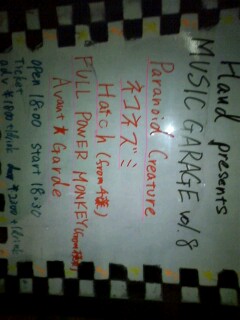 Hand presents
MUSIC GARAGE vol.8
Paranoid Creature
ネコネズミ
Hatch (from千葉)
FULL POWER MONKEY (from
Avant★Garde
open 18:00 start 18:30
Ticket
adv ¥1800 day ¥2000